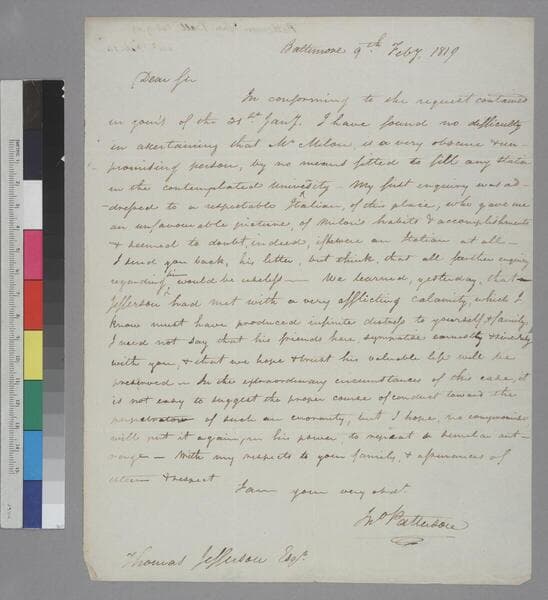 Baltimore 9th Feby. 1819
Dear Sir
In conforming to the request contained
in yours of the 31st Jany. I have found no difficulty
in ascertaining that Mr Milon, is a very obscure & un-
promising person, by no means fitted to fill any station
in the contemplated University – My first enquiry was ad-
dressed to a respectable Italian, of this place, who gave me
an unfavourable picture, of Milon's habits & accomplishments
& seemed to doubt, indeed, if he were an Italian at all –
I send you back, his letter, but think, that all further enquiry
regarding him would be useless – We learned, yesterday, that
Jefferson had met with a very afflicting calamity, which I
know must have produced infinite distress to yourself & family.
I need not say that his friends here, sympathise earnestly & sincerely
with you, & that we hope & trust his valuable life will be
preserved – In the extraordinary circumstances of this case, it
is not easy to suggest the proper course of conduct toward the
perpetrator of such an enormity, but I hope, no compromise
will put it again, in his power, to repeat a similar out-
rage – With my respects to your family, & assurances of
esteem & respect
I am your very obdt.
Jno Patterson
Thomas Jefferson Esqr.